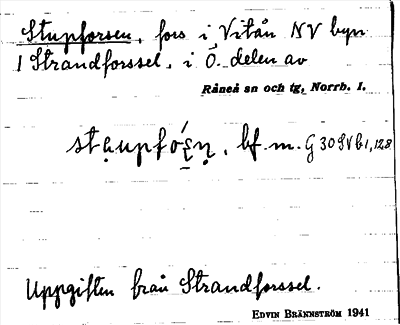 Stupforsen, fors i Vitån NV byn
1 Strandforssel, i Ö. delen av
Råneå sn och tg, Norrb. l.
bf. m. G 30 SV b1,128
Uppgiften från Strandforssel.
EDVIN BRÄNNSTRÖM 1941